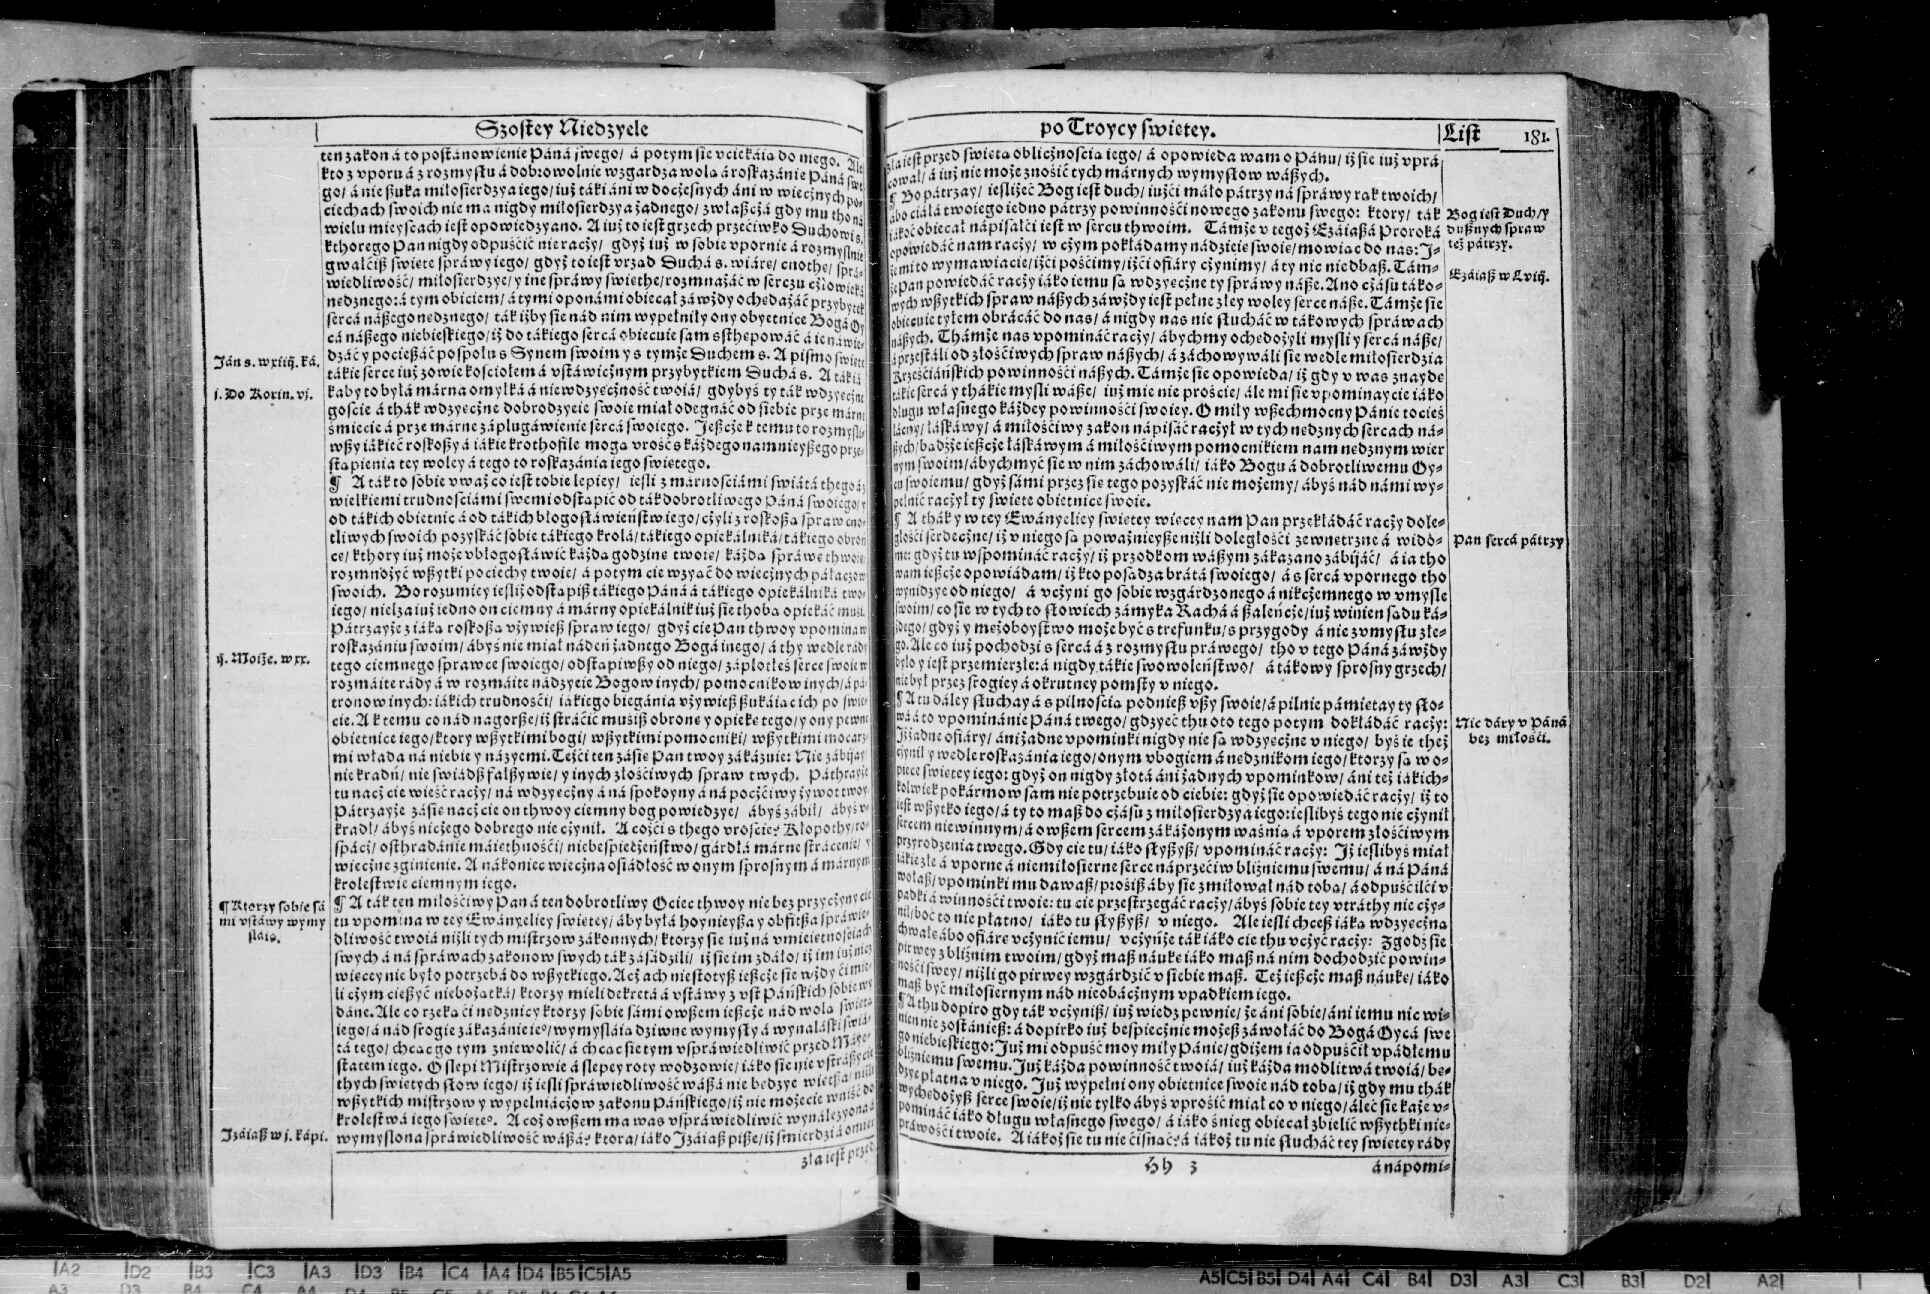 Szostey Niedzyele
ten zakon á to postánowienie Páná swego/ á potym sie vciekáia do niego. Ale
kto z vporu á z rozmysłu á dobrowolnie wzgardza wola á roskazánie Páná swe
go/ á nie szuka miłosierdzya iego/ iuż táki áni w docżesnych áni w wiecżnych po-
ciechach swoich nie ma nigdy miłosierdzya żadnego/ zwłaszcżá gdy mu tho ná
wielu mieyscach iest opowiedzyano. A iuż to iest grzech przećiwko Duchowi s.
kthorego Pan nigdy odpuśćić nie racży/ gdyż iuż w sobie vpornie á rozmyślnie
gwałćisz swiete spráwy iego/ gdyż to iest vrzad Duchá s. wiáre/ cnothe/ sprá-
wiedliwość/ miłosierdzye/ y ine spráwy swiethe/ rozmnażáć w sercżu cżłowieká
nedznego: á tym obiciem/ á tymi oponámi obiecał záwżdy ochedażáć przybytek
sercá nászego nedznego/ ták iżby sie nád nim wypełniły ony obyetnice Bogá Oy
cá nászego niebieskiego/ iż do tákiego sercá obiecuie sam sthepowáć á ie náwie-
dzáć y pocieszáć pospołu s Synem swoim y s tymże Duchem s. A pismo swiete
tákie serce iuż zowie kościołem á vstáwicżnym przybytkiem Duchá s. A ták iá
kaby to byłá márna omyłká á niewdzyecżność twoiá/ gdybyś ty ták wdzyecżne
goscie á thák wdzyecżne dobrodzyeie swoie miał odegnáć od siebie prze márne
śmiecie á prze márne záplugáwienie sercá swoiego. Jeszcże k temu to rozmyśla-
wszy iákieć roskoszy á iákie krothofile moga vrość s káżdego namnieyszego prze-
stapienia tey woley á tego to roskazánia iego swietego.
¶ A ták to sobie vważ co iest tobie lepiey/ iesli z márnościámi swiátá thego áz
wielkiemi trudnościámi swemi odstapić od ták dobrotliwego Páná swoiego/ y
od tákich obietnic á od tákich błogosłáwieństw iego/ cżyli z roskosza spraw cno-
tliwych swoich pozyskáć sobie tákiego krolá/ tákiego opiekálniká/ tákiego obroń
ce/ kthory iuż może vbłogosłáwić káżda godzine twoie/ káżda spráwe thwoie
rozmnożyć wszytki pociechy twoie/ á potym cie wzyać do wiecżnych páłácow
swoich. Bo rozumiey iesliż odstapisz tákiego Páná á tákiego opiekálniká two-
iego/ nielza iuż iedno on ciemny á márny opiekálnik iuż sie thoba opiekáć musi.
Pátrzayże z iáka roskosza vżywiesz spraw iego/ gdyż cie Pan thwoy vpomina w
roskazániu swoim/ ábyś nie miał nádeń żadnego Bogá inego/ á thy wedle rády
tego ciemnego sprawce swoiego/ odstapiwszy od niego/ záplotłeś serce swoie w
rozmáite rády á w rozmáite nádzyeie Bogow inych/ pomocnikow inych/ á pá-
tronow inych: iákich trudnośći/ iákiego biegánia vżywiesz szukáiac ich po swie-
cie. A k temu co nád nagorsze/ iż stráćić musisz obrone y opieke tego/ y ony pewne
obietnice iego/ ktory wszytkimi bogi/ wszytkimi pomocniki/ wszytkimi mocarz-
mi włada ná niebie y ná zyemi. Teżći ten zásie Pan twoy zákázuie: Nie zábijay
nie kradń/ nie swiadsz fałszywie/ y inych złośćiwych spraw twych. Páthrayże
tu nacż cie wieść racży/ ná wdzyecżny á ná spokoyny á ná pocżćiwy żywot twoy.
Pátrzayże zásie nacż cie on thwoy ciemny bog powiedzye/ ábyś zábił/ ábyś v-
kradł/ ábyś nicżego dobrego nie cżynił. A cożći s thego vroście? Kłopothy/ ro-
spácż/ osthrádánie máiethnośći/ niebespiecżeństwo/ gárdłá márne strácenie/ y
wiecżne zginienie. A nákoniec wiecżna osiádłość w onym sprosnym á márnym
krolestwie ciemnym iego.
¶ A ták ten miłośćiwy Pan á ten dobrotliwy Ociec thwoy nie bez przycżyny cie
tu vpomina w tey Ewányeliey swietey/ áby byłá hoynieysza y obfitsza spráwie-
dliwość twoiá niżli tych mistrzow zakonnych/ ktorzy sie iuż ná vmieietnościach
swych á ná spráwach zakonow swych ták zásádzili/ iż sie im zdáło/ iż im iuż nicz
wiecey nie było potrzebá do wszytkiego. Acż ach niestotysz ieszcże sie wżdy ći mie-
li cżym cieszyć niebożatká/ ktorzy mieli dekretá á vstáwy z vst Páńskich sobie wy
dáne. Ale co rzeka ći nedznicy ktorzy sobie sámi owszem ieszcże nád wola swieta
iego/ á nád srogie zákazánie ie°/ wymysláia dziwne wymysły á wynálaski swiá-
tá tego/ chcac go tym zniewolić/ á chcac sie tym vspráwiedliwić przed Máye-
statem iego. O slepi Mistrzowie á slepey roty wodzowie/ iáko sie nie vstrászycie
thych swietych słow iego/ iż iesli spráwiedliwość wászá nie bedzye wietsza/ niżli
wszytkich mistrzow y wypełniácżow zakonu Páńskiego/ iż nie możecie wniść do
krolestwá iego swiete°. A coż owszem ma was vspráwiedliwić wynálezyona á
wymyslona spráwiedliwość wászá? ktora/ iáko Jzáiasz pisze/ iż śmierdzi á omier
zła iest przed
Ján s. w xiiij. ká.
j. Do Korin. vj.
ij. Moiże. w xx.
¶ Ktorzy sobie sá
mi vstáwy wymy
sláia.
Jzáiasz w j. kápi.
po Troycy swietey.
List 181.
zła iest przed swieta oblicżnoscia iego/ á opowieda wam o Pánu/ iż sie iuż vprá
cował/ á iuż nie może znośić tych márnych wymysłow wászych.
¶ Bo pátrzay/ iesliżeć Bog iest duch/ iużći máło pátrzy ná spráwy rak twoich/
ábo ciáłá twoiego iedno pátrzy powinnośći nowego zakonu swego: ktory/ ták
iákoć obiecał nápisálći iest w sercu thwoim. Támże v tegoż Ezáiaszá Proroká
opowiedáć nam racży/ w cżym pokłádamy nádzieie swoie/ mowiac do nas: J-
żemi to wymawiacie/ iżći pośćimy/ iżći ofiáry cżynimy/ á ty nic nie dbasz. Tám-
że Pan powiedáć racży iáko iemu sa wdzyecżne ty spráwy násze. Ano cżásu táko-
wych wszytkich spraw nászych záwżdy iest pełne złey woley serce násze. Támże sie
obiecuie tyłem obrácáć do nas/ á nigdy nas nie słucháć w tákowych spráwach
nászych. Thámże nas vpomináć racży/ ábychmy ochedożyli mysli y sercá násze/
á przestáli od złośćiwych spraw nászych/ á záchowywáli sie wedle miłosierdzia
Krześćiáńskich powinnośći nászych. Támże sie opowieda/ iż gdy v was znayde
tákie sercá y thákie mysli wásze/ iuż mie nie proście/ ále mi sie vpominaycie iáko
długu własnego káżdey powinnośći swoiey. O miły wszechmocny Pánie tocieś
łácny/ łáskáwy/ á miłośćiwy zakon nápisáć racżył w tych nedznych sercach ná-
szych/ badźże ieszcże łáskáwym á miłośćiwym pomocnikiem nam nedznym wier
nym swoim/ ábychmyć sie w nim záchowáli/ iáko Bogu á dobrotliwemu Oy-
cu swoiemu/ gdyż sámi przez sie tego pozyskáć nie możemy/ ábyś nád námi wy-
pełnić racżył ty swiete obietnice swoie.
¶ A thák y w tey Ewányeliey swietey wiecey nam Pan przekłádáć racży dole-
głośći serdecżne/ iż v niego sa poważnieysze niżli doległośći zewnetrzne á wido-
me: gdyż tu wspomináć racży/ iż przodkom wászym zákazano zábijáć/ á ia tho
wam ieszcże opowiádam/ iż kto posadza brátá swoiego/ á s sercá vpornego tho
wynidzye od niego/ á vcżyni go sobie wzgárdzonego á nikcżemnego w vmysle
swoim/ co sie w tych to słowiech zámyka Rácha á szaleńcże/ iuż winien sadu ká-
żdego/ gdyż y mężoboystwo może być s trefunku/ s przygody á nie z vmysłu złe-
go. Ale co iuż pochodzi s sercá á z rozmysłu práwego/ tho v tego Páná záwżdy
było y iest przemierzłe: á nigdy tákie swowoleństwo/ á tákowy sprosny grzech/
nie był przez srogiey á okrutney pomsty v niego.
¶ A tu dáley słuchay á s pilnoscia podnieś vszy swoie/ á pilnie pámietay ty sło-
wá á to vpominánie Páná twego/ gdzyeć thu oto tego potym dokłádáć racży:
Jż żadne ofiáry/ áni żadne vpominki nigdy nie sa wdzyecżne v niego/ byś ie theż
cżynił y wedle roskazánia iego/ onym vbogiem á nedznikom iego/ ktorzy sa w o-
piece swietey iego: gdyż on nigdy złotá áni żadnych vpominkow/ áni też iákich-
kolwiek pokármow sam nie potrzebuie od ciebie: gdyż sie opowiedáć racży/ iż to
iest wszytko iego/ á ty to masz do cżásu z miłosierdzya iego: ieslibyś tego nie cżynił
sercem niewinnym/ á owszem sercem zákażonym waśnia á vporem złośćiwym
przyrodzenia twego. Gdy cie tu/ iáko słyszysz/ vpomináć racży: Jż ieslibyś miał
iákie złe á vporne á niemiłosierne serce náprzećiw bliźniemu swemu/ á ná Páná
wołasz/ vpominki mu dawasz/ prosisz áby sie zmiłował nád toba/ á odpuśćiłći v
padki á winnośći twoie: tu cie przestrzegáć racży/ ábyś sobie tey vtráthy nie cży-
nił/ boć to nie płatno/ iáko tu słyszysz/ v niego. Ale iesli chcesz iáka wdzyecżna
chwałe ábo ofiáre vcżynić iemu/ vcżyńże ták iáko cie thu vcżyć racży: Zgodź sie
pirwey z bliźnim twoim/ gdyż masz náuke iáko masz ná nim dochodzić powin-
nośći swey/ niżli go pirwey wzgárdzić v siebie masz. Też ieszcże masz náuke/ iáko
masz być miłosiernym nád nieobácżnym vpadkiem iego.
¶ A thu dopiro gdy ták vcżynisz/ iuż wiedz pewnie/ że áni sobie/ áni iemu nic wi-
nien nie zostániesz: á dopirko iuż bespiecżnie możesz záwołáć do Bogá Oycá swe
go niebieskiego: Już mi odpuść moy miły Pánie/ gdiżem ia odpuśćił vpádłemu
bliźniemu swemu. Już káżda powinność twoiá/ iuż káżda modlitwá twoiá/ be-
dzye płatna v niego. Już wypełni ony obietnice swoie nád toba/ iż gdy mu thák
wychedożysz serce swoie/ iż nie tylko ábyś vprośić miał co v niego/ áleć sie każe v-
pomináć iáko długu własnego swego/ á iáko śnieg obiecał zbielić wszythki nie-
práwośći twoie. A iákoż sie tu nie ćisnáć? á iákoż tu nie słucháć tey swietey rády
Hh 3 á nápomi-
Bog iest Duch/ y
dusznych spraw
też pátrzy.
Ezáiasz w Lviij.
Pan sercá pátrzy
Nic dáry v Páná
bez miłośći.
A2 D2 B3 C3 A3 D3 B4 C4 A4 D4 B5 C5 A5
A5 C5 B5 D4 A4 C4 B4 D3 A3 C3 B3 D2 A2